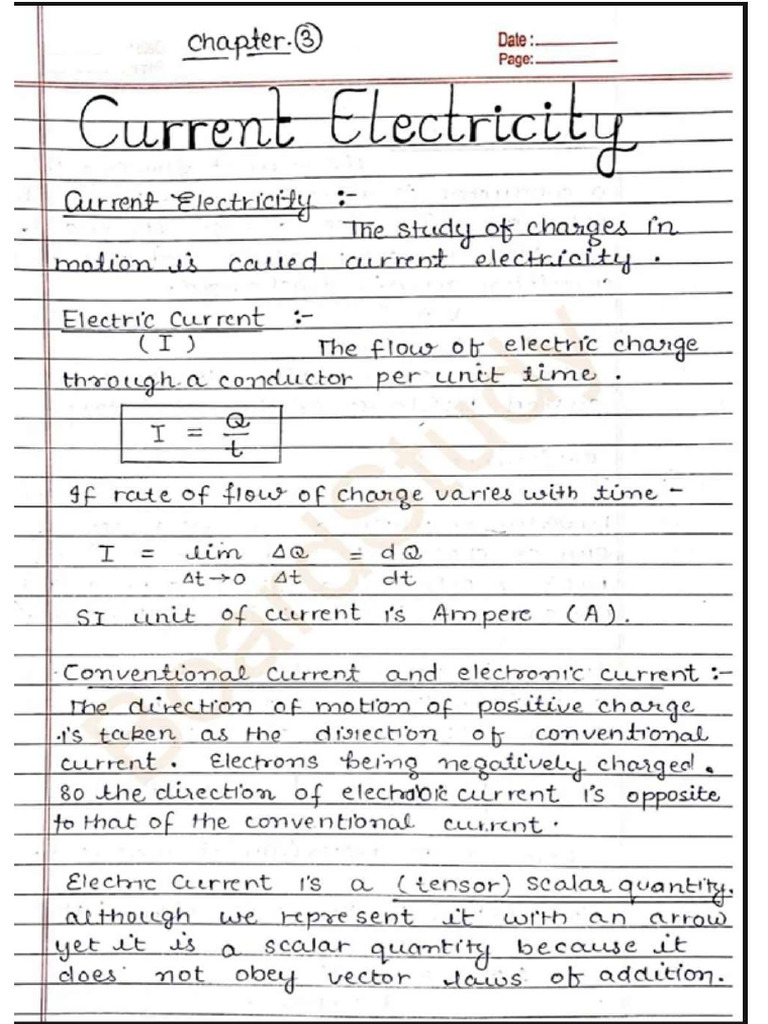 Chapter. ③
Date :
Page:
Current Electricity
Current Electricity :-
The study of charges in
motion is called current electricity .
Electric Current :-
( I ) The flow of electric charge
through a conductor per unit time .
I = Q/t
If rate of flow of charge varies with time -
I = lim ΔQ = dQ
Δt→0 Δt dt
SI unit of current is Ampere (A).
Conventional current and electronic current :-
The direction of motion of positive charge
is taken as the direction of conventional
current . Electrons being negatively charged .
so the direction of electronic current is opposite
to that of the conventional current .
Electric Current is a (tensor) scalar quantity.
although we represent it with an arrow
yet it is a scalar quantity because it
does not obey vector laws of addition.
BoardStudy